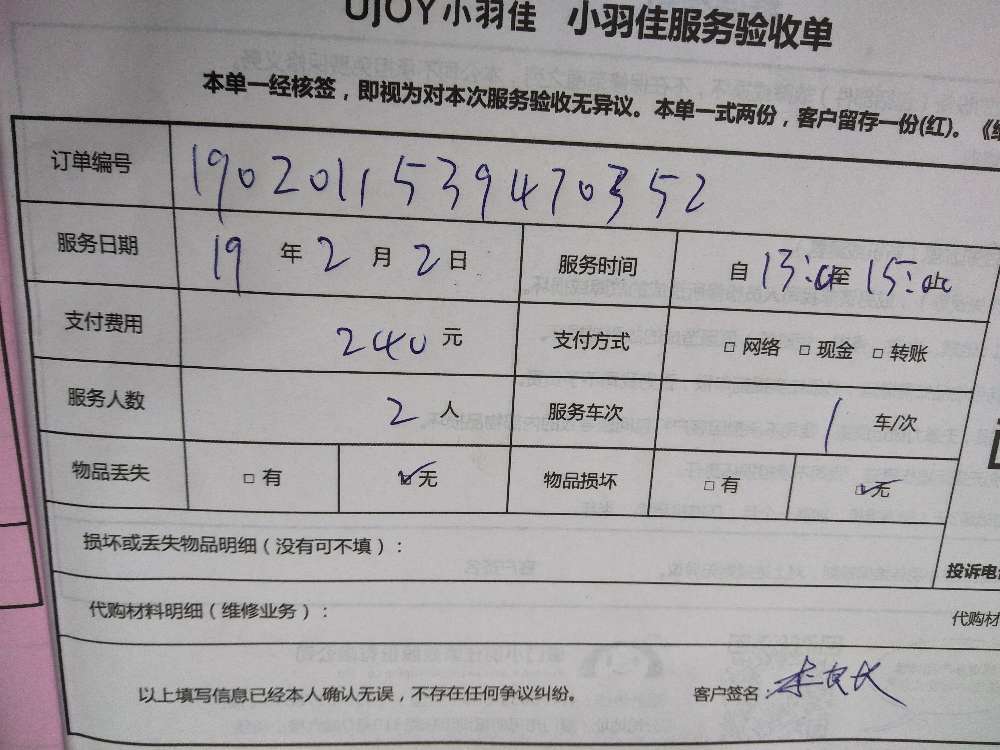 UJOY小羽佳 小羽佳服务验收单
本单一经核签，即视为对本次服务验收无异议。本单一式两份，客户留存一份(红)。《
订单编号 1902011539470352
服务日期 19 年 2 月 2 日 服务时间 自 13:00 至 15:00 止
支付费用 240 元 支付方式 □ 网络 □ 现金 □ 转账
服务人数 2 人 服务车次 1 车/次
物品丢失 □ 有 ☑ 无 物品损坏 □ 有 ☑ 无
损坏或丢失物品明细（没有可不填）：
投诉电
代购材料明细（维修业务）： 代购材
以上填写信息已经本人确认无误，不存在任何争议纠纷。 客户签名：